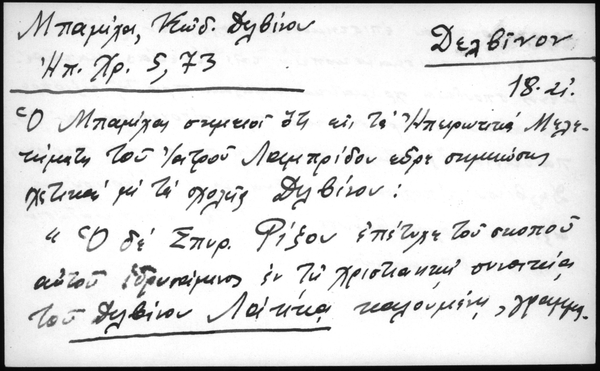 Μπαμίχα, Κώδ. Δελβίνου
Δέλβινον
Ἠπ. Χρ. 5, 73
18. αἰ.
Ὁ Μπαμίχας σημειοῖ ὅτι εἰς τὰ Ἠπειρωτικὰ Μελε-
τήματα τοῦ ἰατροῦ Λαμπρίδου εὗρε σημειώσεις
σχετικὰς μὲ τὰ σχολεῖα Δελβίνου:
" Ὁ δὲ Σπυρ. Ρίζου ἐπέτυχε τοῦ σκοποῦ
αὐτοῦ ἱδρυσάμενος ἐν τῇ χριστιανικῇ συνοικίᾳ
τοῦ Δελβίνου Λάκκα καλουμένῃ, γραμμ-